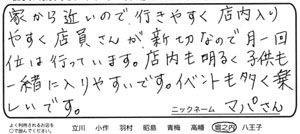 家から近いので、行きやすく店内入り
やすく店員さんが親切なので月一回
位は行っています。店内も明るく子供も
一緒に入りやすいです。イベントも多く楽
しいです。
ニックネーム マパさん
よく利用されるお店を
○で囲んでください。 立川 小作 羽村 昭島 青梅 高幡 堀之内 八王子